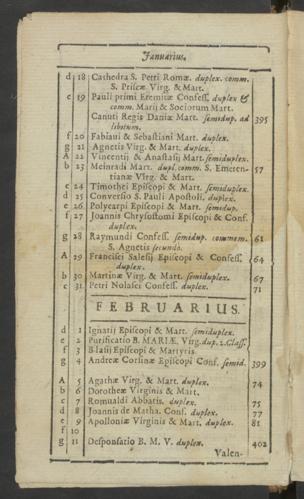 Januarius.
d 18 Cathedra S. Petri Romæ. duplex. comm.
S. Priscæ Virg. & Mart.
e 19 Pauli primi Eremitæ Confess. duplex &
comm. Marij & Sociorum Mart.
Canuti Regis Daniæ Mart. semidup. ad 395
libitum.
f 20 Fabiani & Sebastiani Mart. duplex.
g 21 Agnetis Virg. & Mart. duplex.
A 22 Vincentij & Anastasij Mart. semiduplex.
b 23 Meinradi Mart. dupl. comm. S. Emeren- 57
tianæ Virg. & Mart.
c 24 Timothei Episcopi & Mart. semiduplex.
d 25 Conversio S. Pauli Apostoli. duplex.
e 26 Polycarpi Episcopi & Mart. semidup.
f 27 Joannis Chrysostomi Episcopi & Conf.
duplex.
g 28 Raymundi Confess. semidup. commem. 61
S. Agnetis secundo.
A 29 Francisci Salesij Episcopi & Confess. 64
duplex.
b 30 Martinæ Virg. & Mart. semiduplex. 67
c 31 Petri Nolasci Confess. duplex. 71
FEBRUARIUS.
d 1 Ignatij Episcopi & Mart. semiduplex.
e 2 Purificatio B. MARIÆ. Virg. dup. 2. Class.
f 3 Blasij Episcopi & Martyris.
g 4 Andreæ Corsinæ Episcopi Conf. semid. 399
A 5 Agathæ Virg. & Mart. duplex. 74
b 6 Dorotheæ Virginis & Mart.
c 7 Romualdi Abbatis. duplex. 75
d 8 Joannis de Matha. Conf. duplex. 77
e 9 Apolloniæ Virginis & Mart. duplex. 81
f 10
g 11 Desponsatio B. M. V. duplex. 402
Valen-